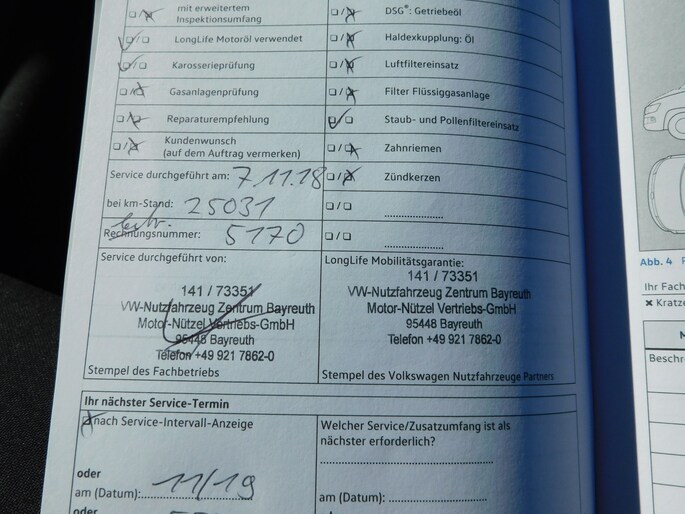 mit erweitertem
Inspektionsumfang
DSG®: Getriebeöl
LongLife Motoröl verwendet
Haldexkupplung: Öl
Karosserieprüfung
Luftfiltereinsatz
Gasanlagenprüfung
Filter Flüssiggasanlage
Reparaturempfehlung
Staub- und Pollenfiltereinsatz
Kundenwunsch
(auf dem Auftrag vermerken)
Zahnriemen
Service durchgeführt am: 7.11.18
Zündkerzen
bei km-Stand: 25031
Rechnungsnummer: 5170
Service durchgeführt von:
141 / 73351
VW-Nutzfahrzeug Zentrum Bayreuth
Motor-Nützel Vertriebs-GmbH
95448 Bayreuth
Telefon +49 921 7862-0
Stempel des Fachbetriebs
LongLife Mobilitätsgarantie:
141 / 73351
VW-Nutzfahrzeug Zentrum Bayreuth
Motor-Nützel Vertriebs-GmbH
95448 Bayreuth
Telefon +49 921 7862-0
Stempel des Volkswagen Nutzfahrzeuge Partners
Ihr nächster Service-Termin
nach Service-Intervall-Anzeige
oder
am (Datum): 11/19
oder
Welcher Service/Zusatzumfang ist als
nächster erforderlich?
am (Datum):
Abb. 4
Ihr Fach
Kratze
Beschre